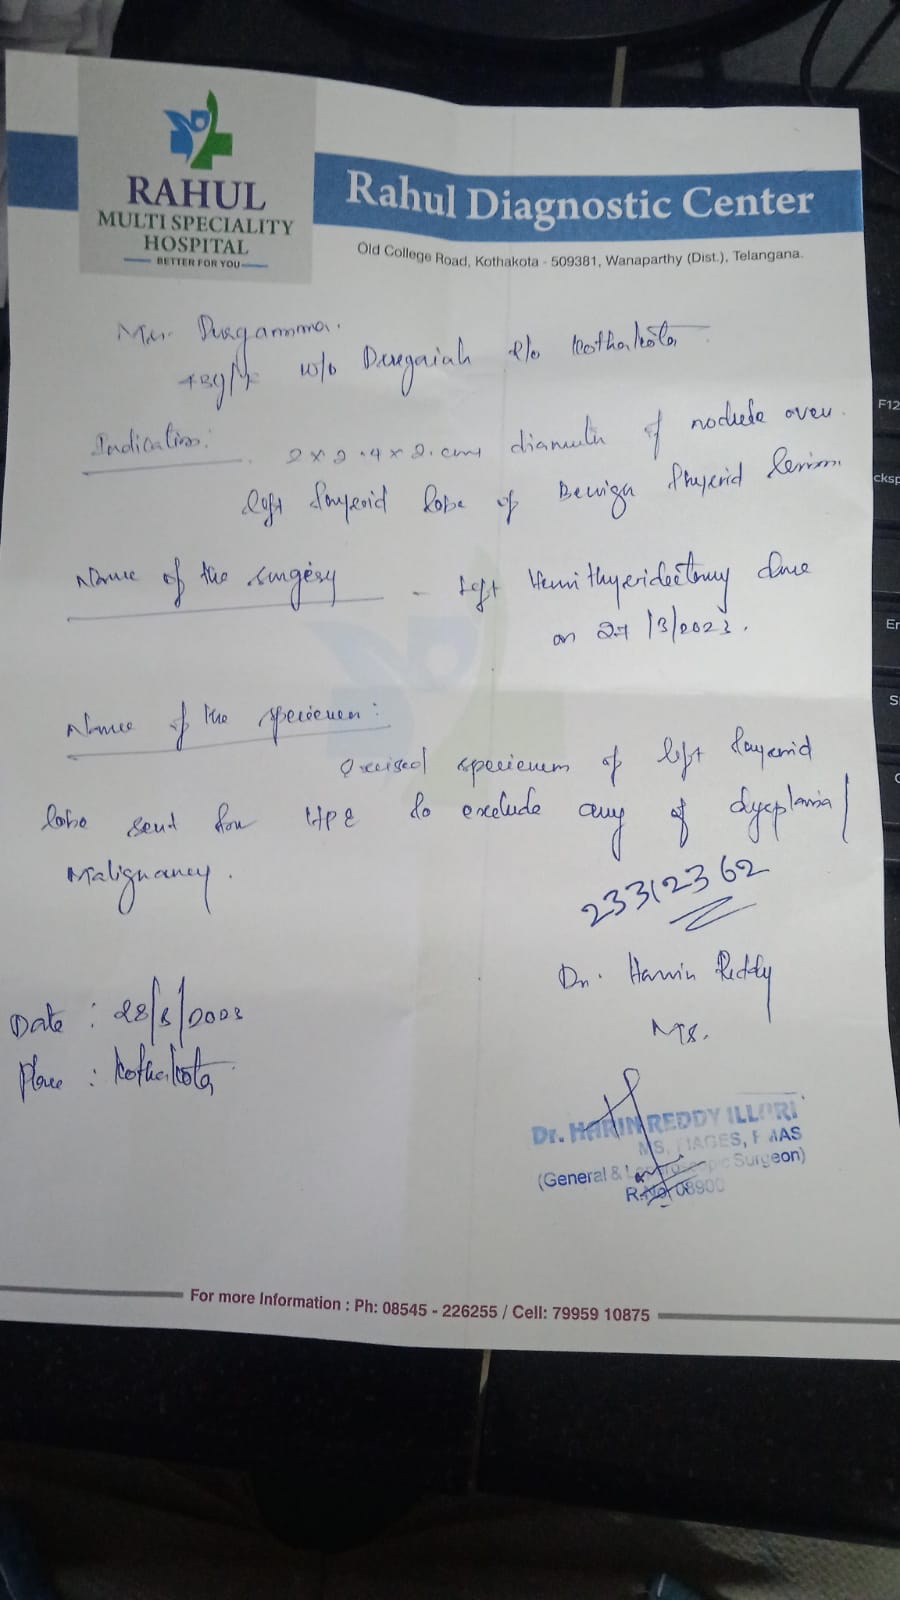 RAHUL
MULTI SPECIALITY
HOSPITAL
BETTER FOR YOU
Rahul Diagnostic Center
Old College Road, Kothakota - 509381, Wanaparthy (Dist.), Telangana.
Durgamma.
w/o Durgaiah R/o Kothakota
Indication: 2 x 2.4 x 2. cms diameter of nodule over
left thyroid lobe of Benign thyroid lesion
Name of the surgery - Left Hemithyroidectomy done
on 27/3/2023.
Name of the specimen:
Excised specimen of left thyroid
lobe sent for HPE to exclude any of dysplasia/
Malignancy.
23312362
Dr. Harin Reddy
MS.
Date : 28/3/2023
Place : Kothakota
Dr. HARIN REDDY ILLURI
MS,
(General & Laparoscopic Surgeon)
R.No. 08900
F12
cksp
En
S
For more Information : Ph: 08545 - 226255 / Cell: 79959 10875